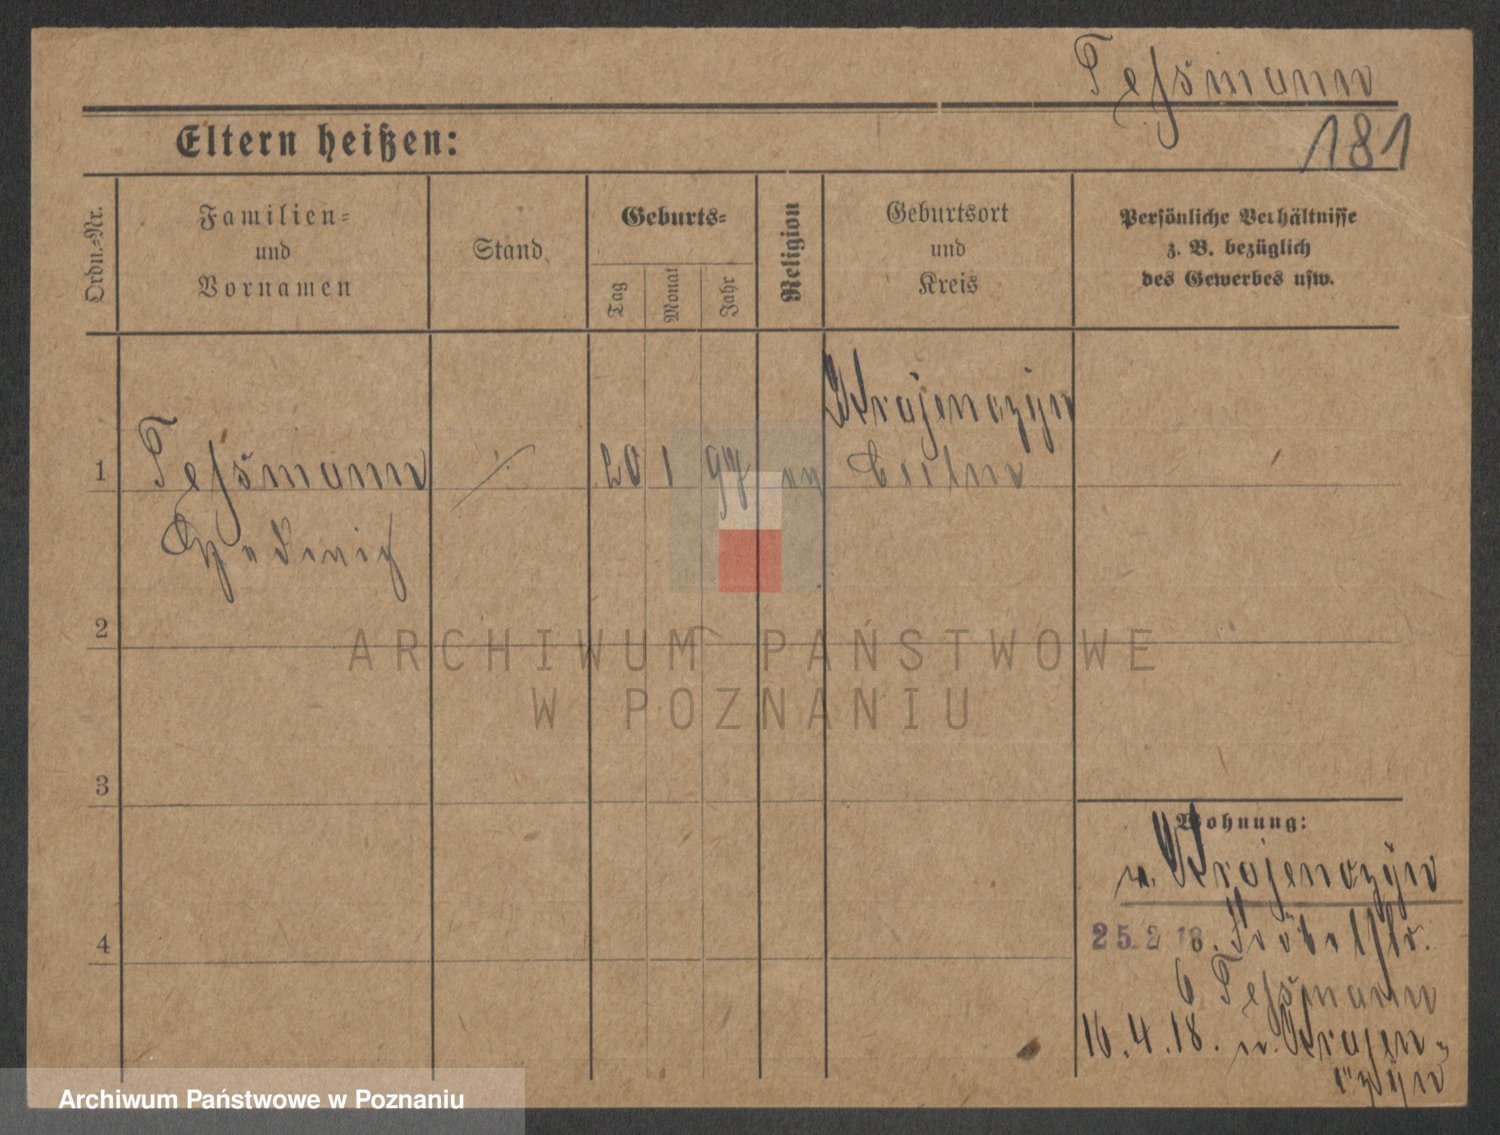 Teßmann
181
Eltern heißen:
Ordn.-Nr.
Familien-
und
Vornamen
Stand
Geburts-
Tag
Monat
Jahr
Religion
Geburtsort
und
Kreis
Persönliche Verhältnisse
z. B. bezüglich
des Gewerbes usw.
Krajenczyn
1 Teßmann ·/. 20 1 97
Hedwig
2
3
4
Wohnung:
n. Krajenczyn
25. 2. 18.
6 Teßmann
16.4.18. n. Krajen-
czyn
ARCHIWUM PAŃSTWOWE
W POZNANIU
Archiwum Państwowe w Poznaniu